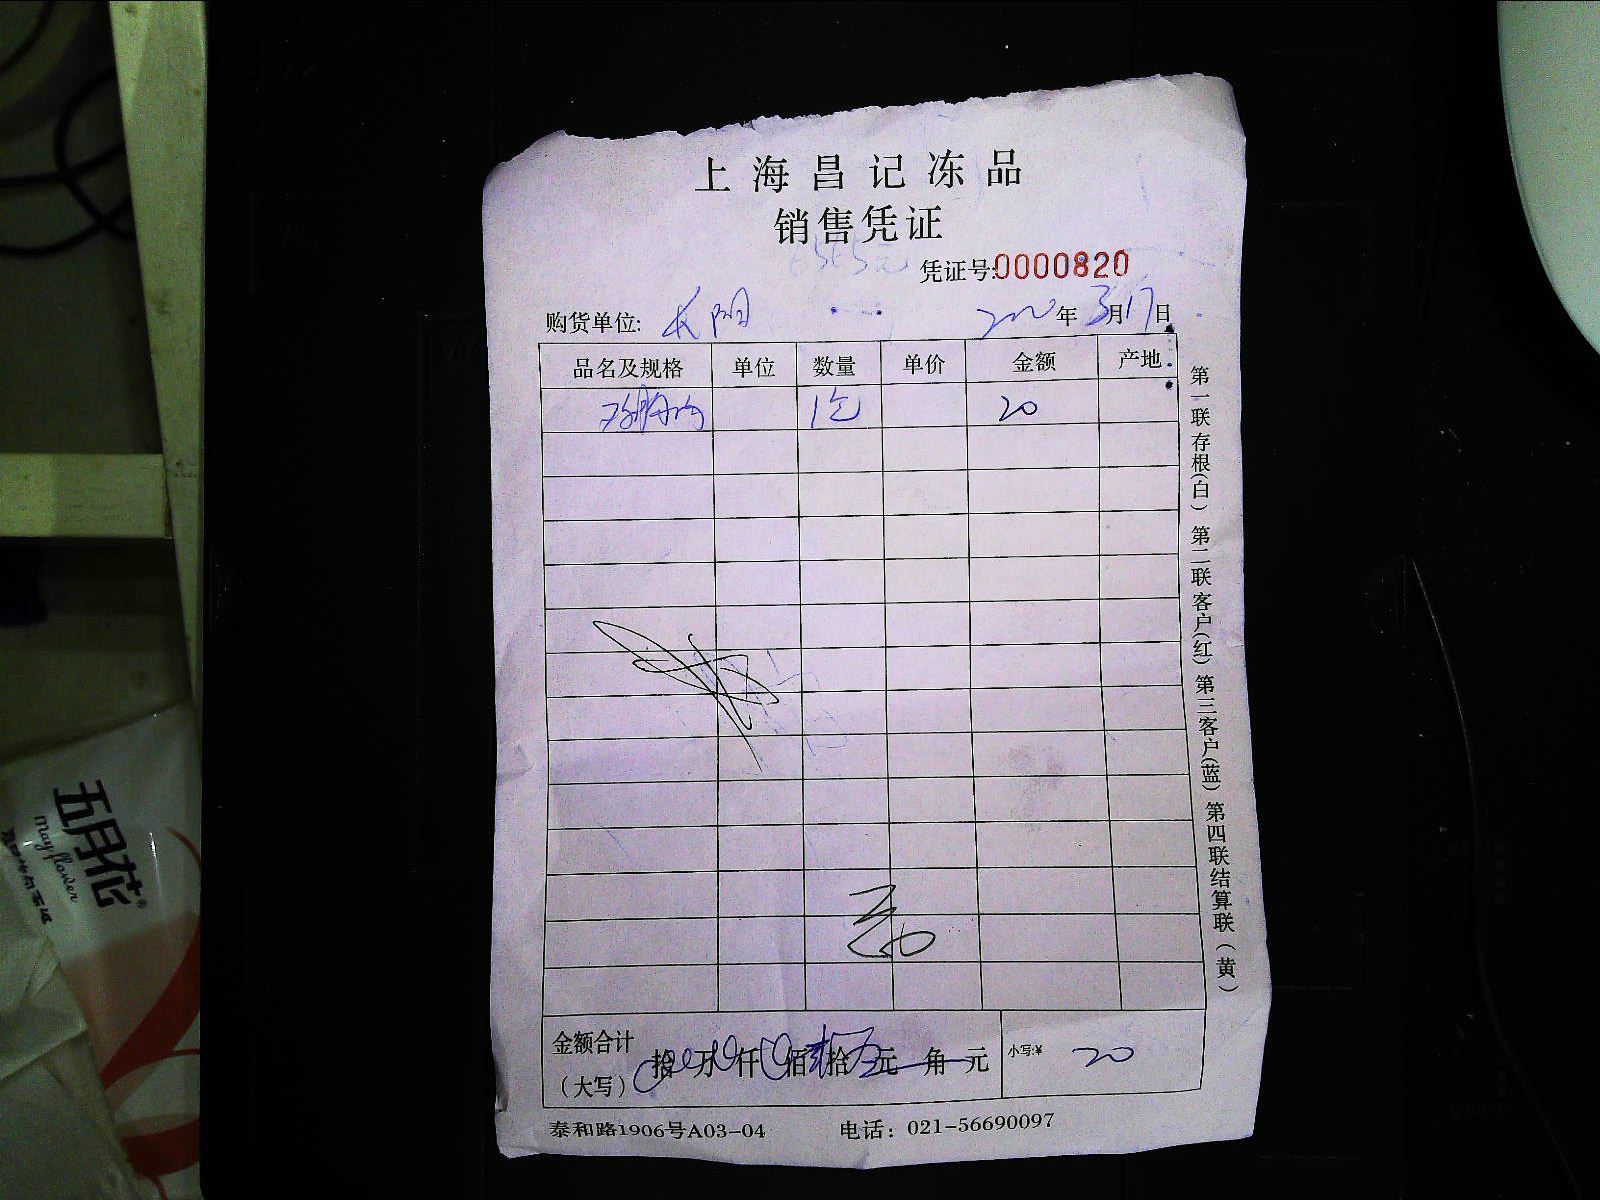 上海昌记冻品
销售凭证
凭证号:0000820
购货单位: 长阳 年 3月17日
品名及规格 单位 数量 单价 金额 产地
1包 20
第一联存根(白) 第二联客户(红) 第三客户(蓝) 第四联结算联(黄)
金额合计(大写) 拾 万 仟 佰 拾 元 角 元 小写:¥ 20
泰和路1906号A03-04 电话: 021-56690097
五月花
Mayflower